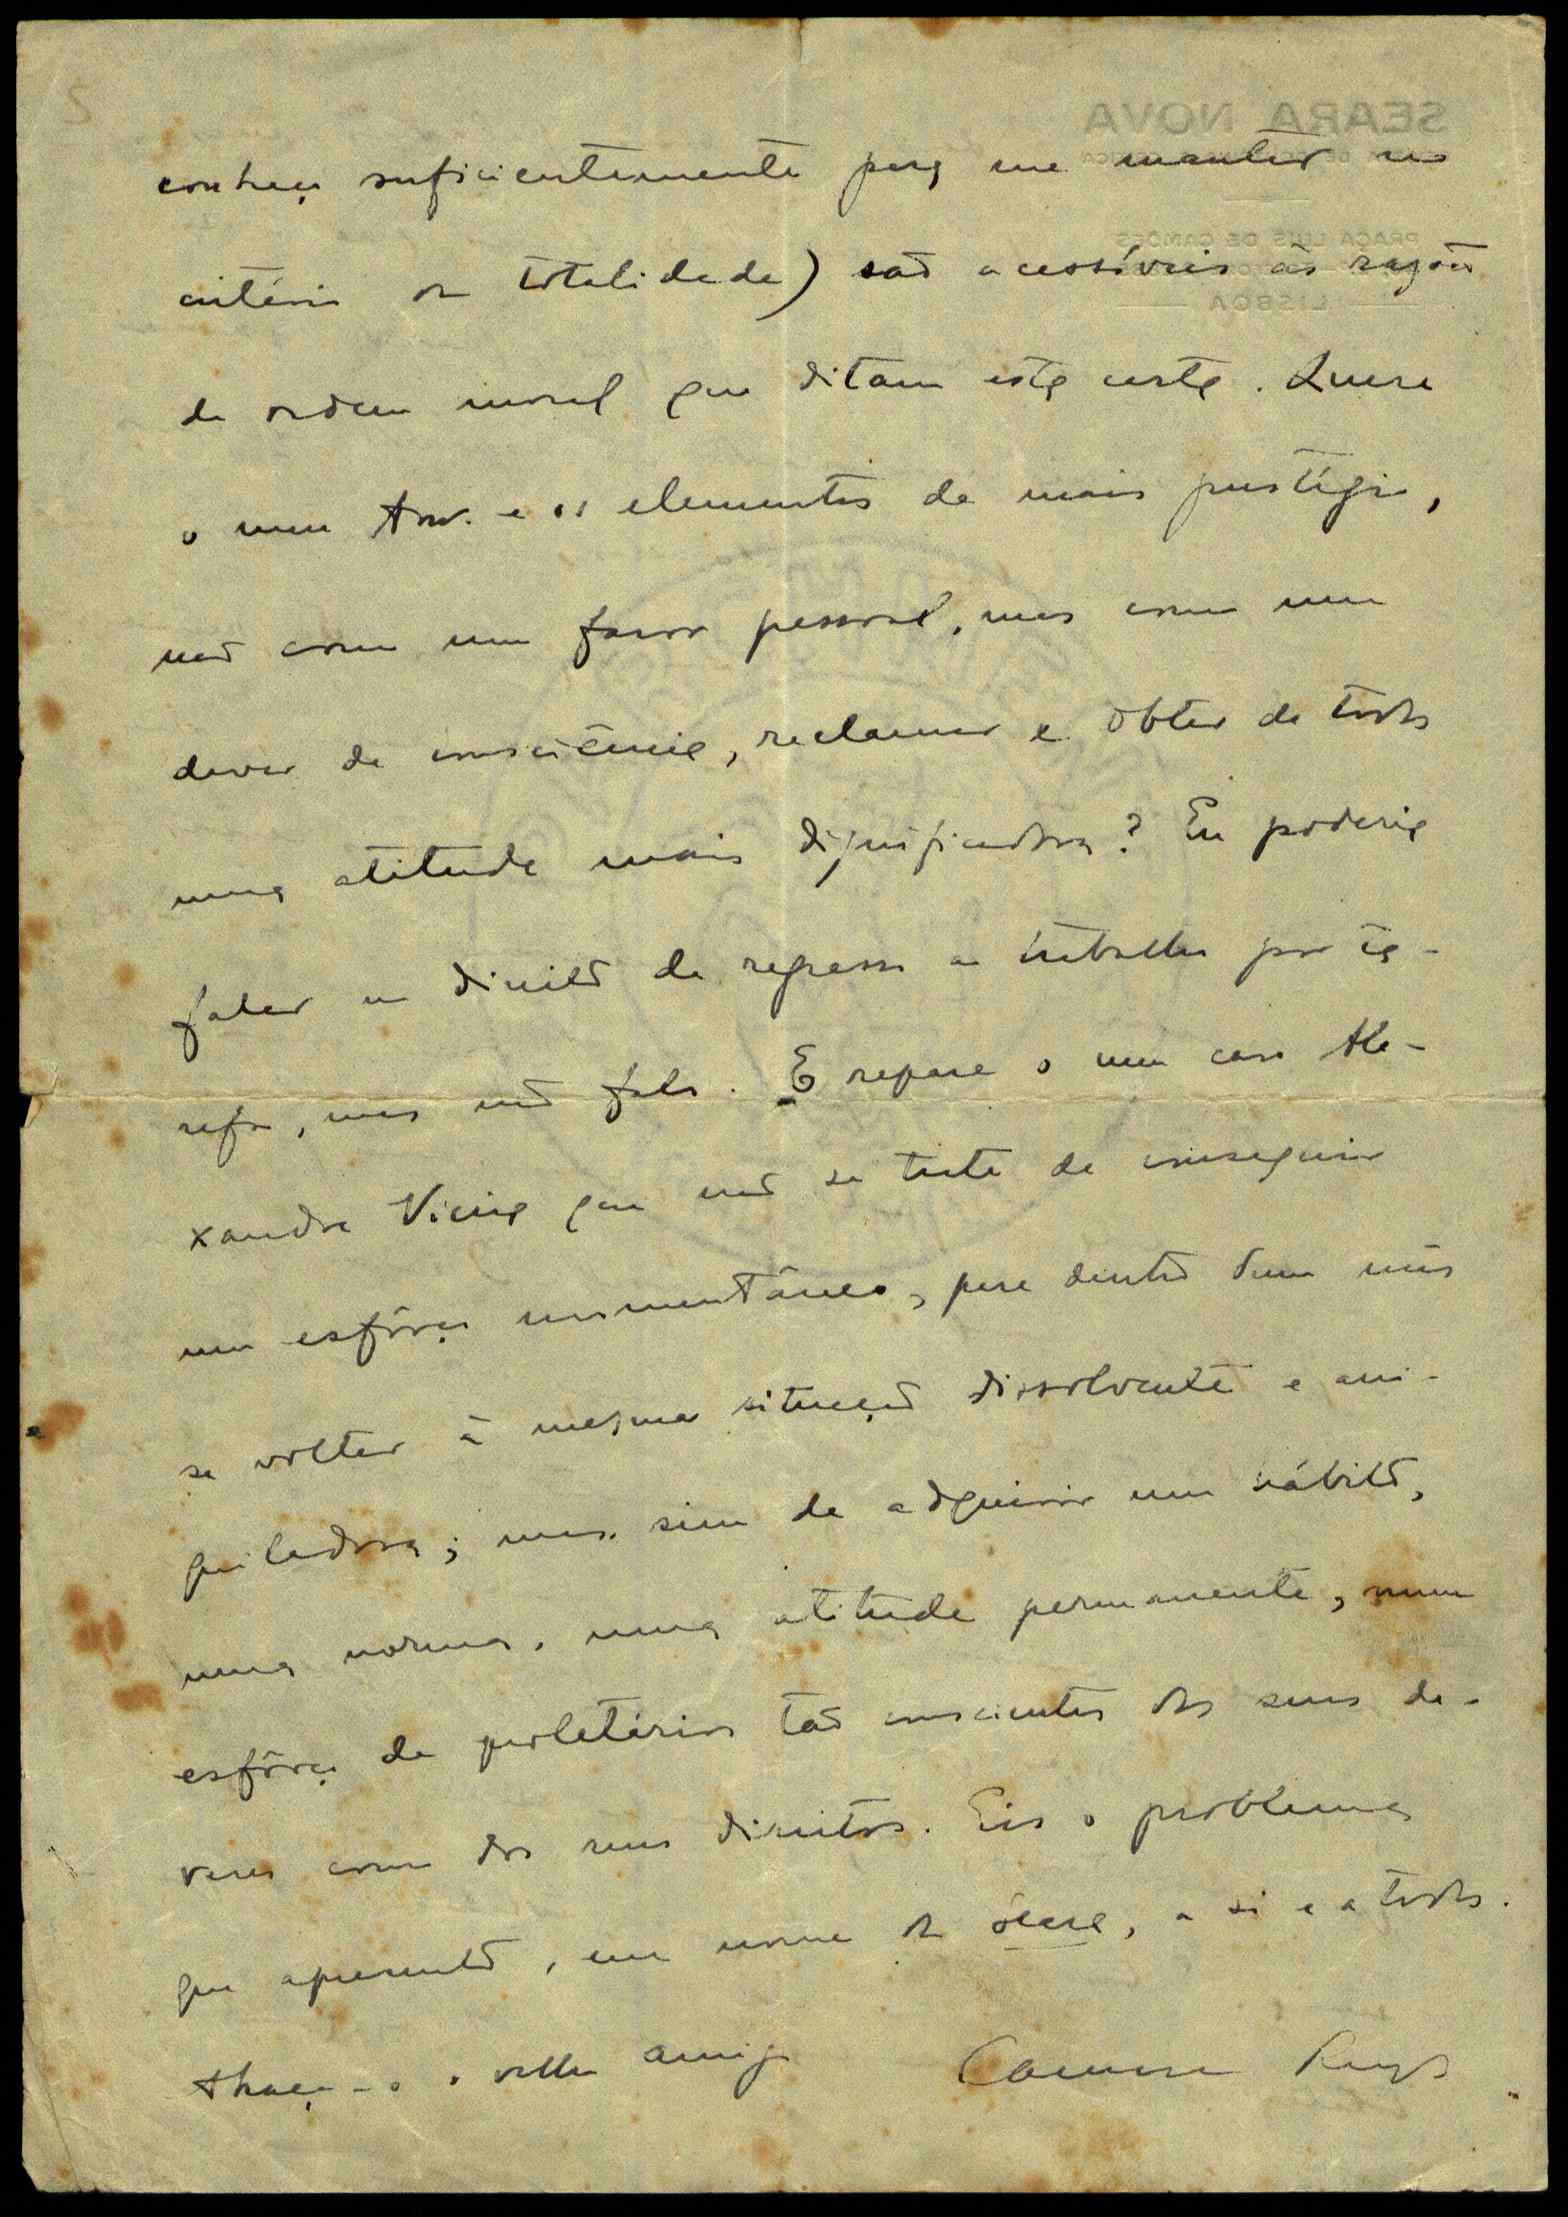 conheço suficientemente para me manter no
critério da totalidade) são acessíveis às razões
de ordem moral que ditam esta carta. Quere
o meu Am. e os elementos de mais prestígio,
não como um favor pessoal, mas como um
dever de consciência, reclamar e obter de todos
uma atitude mais dignificadora? Eu poderia
falar no direito de regresso ao trabalho por ta-
refa, mas não falo. E repare o meu caro Ale-
xandre Vieira que não se trata de conseguir
um esfôrço momentâneo, para dentro dum mês
se voltar à mesma situação dissolvente e ani-
quiladora; mas sim de adquirir um hábito,
uma norma, uma atitude permanente, num
esfôrço de proletários tão conscientes dos seus de-
veres como dos seus direitos. Eis o problema
que apresento, em nome da, a si e a todos.
Abraça-o o velho amigo Camara Reys
SEARA NOVA
PRAÇA LUIS DE CAMÕES
LISBOA